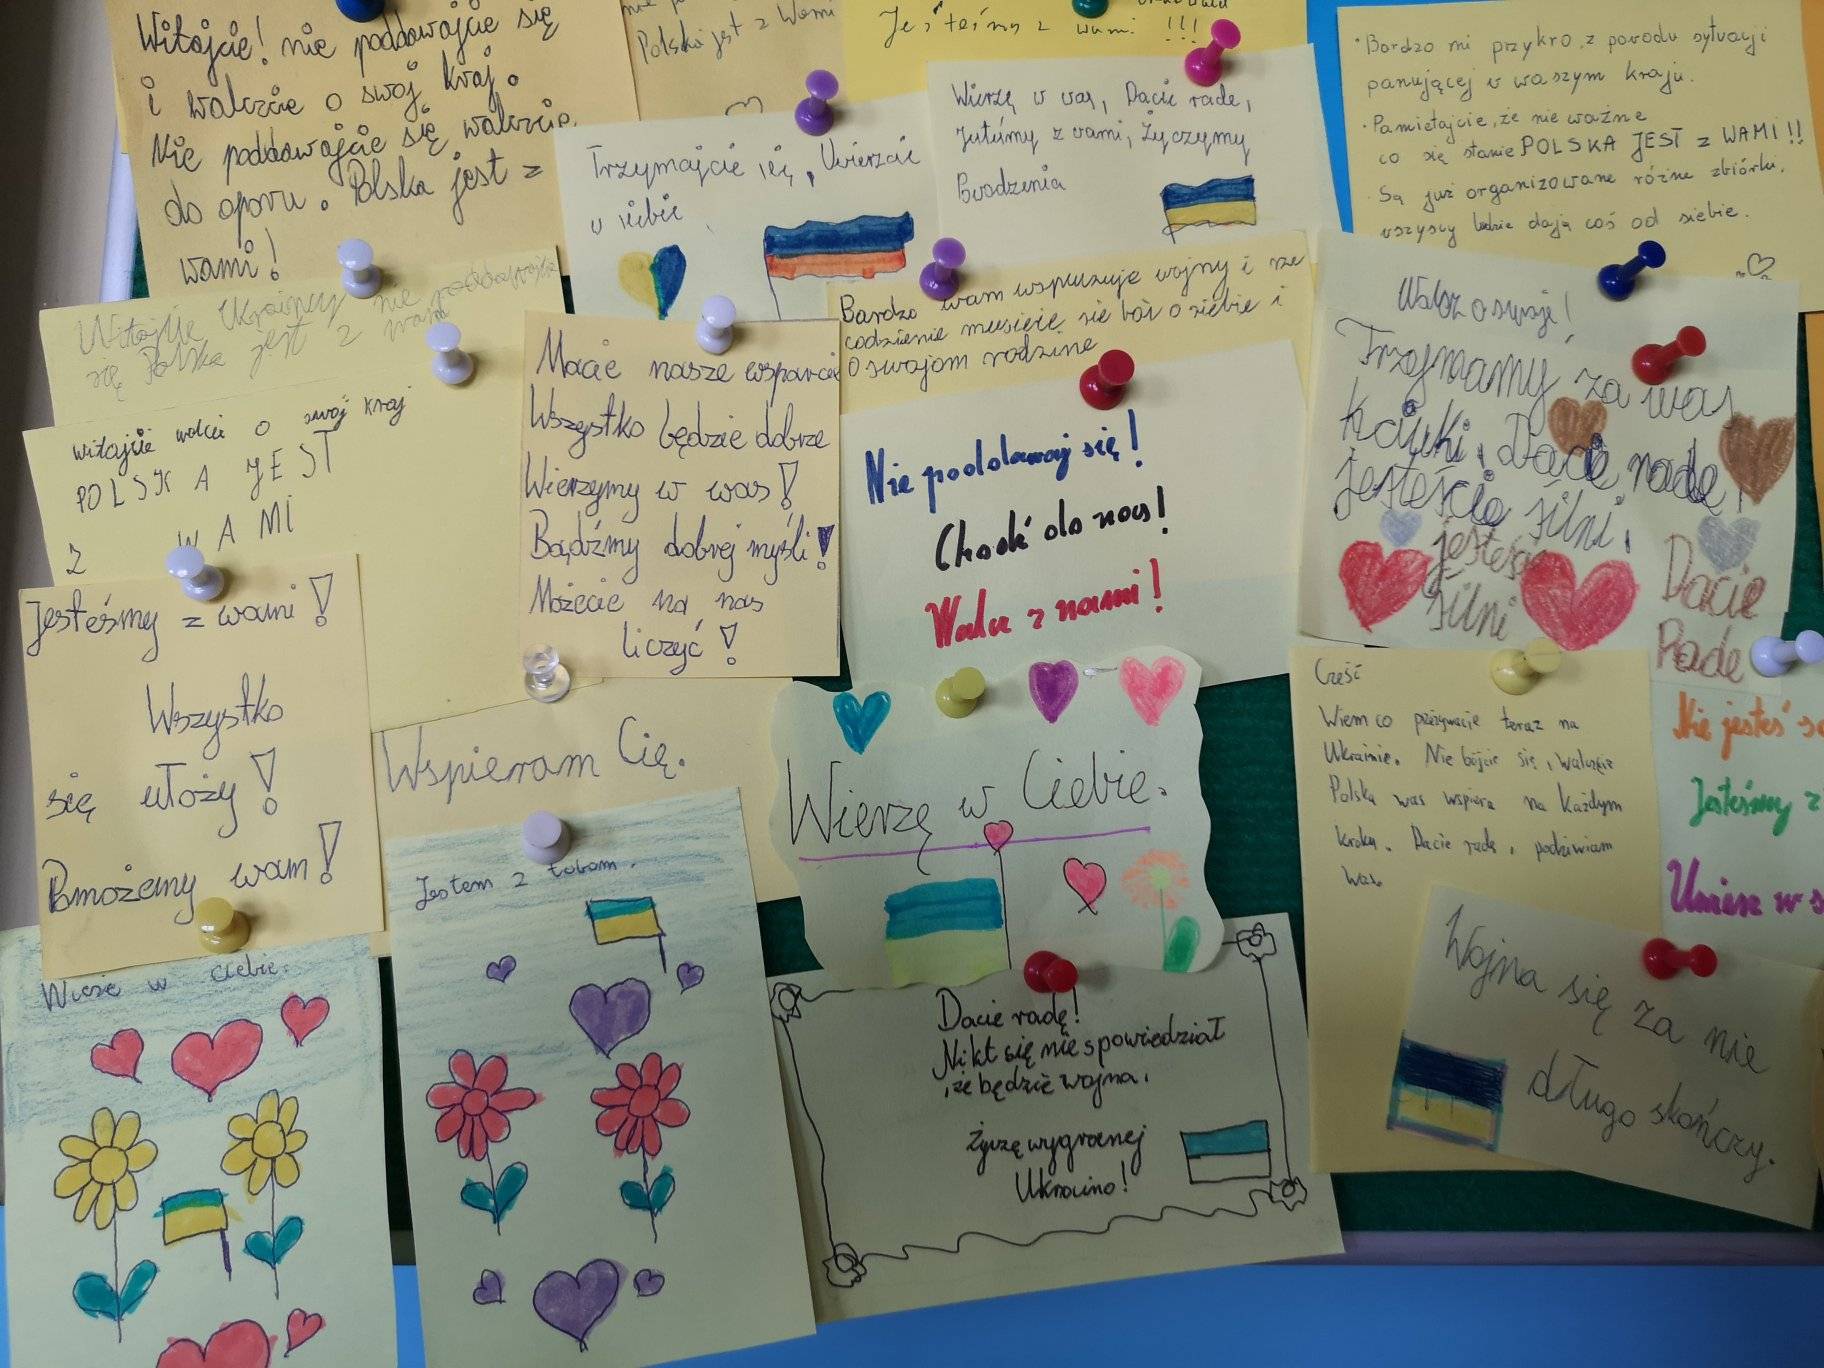 Witajcie! nie poddawajcie się
i walczcie o swój kraj.
Nie poddawajcie się walczcie
do oporu. Polska jest z
wami!
Polska jest z Wami
Jesteśmy z wami !!!
Trzymajcie się, Uwierzcie
w siebie
Wierzę w was, Dacie rade,
Jesteśmy z wami, Życzymy
Powodzenia
Bardzo mi przykro z powodu sytuacji
panującej w waszym kraju.
Pamiętajcie, że nie ważne
co się stanie POLSKA JEST z WAMI!!
Są już organizowane różne zbiórki,
wszyscy ludzie dają coś od siebie.
Witajcie Ukraińcy nie poddawajcie
się Polska jest z wami
Bardzo wam wspułczuje wojny i że
codzienie musicie sie bać o siebie i
o swojom rodzine
witajcie walcie o swój kraj
POLSKA JEST
Z WAMI
Macie nasze wsparcie
Wszystko będzie dobrze
Wierzymy w was!
Bądźmy dobrej myśli!
Możecie na nas
liczyć!
Nie poddawaj się!
Chodź do nas!
Walcz z nami!
Walcz o swoje!
Trzymamy za was
kciuki. Dacie radę!
Jesteście silni.
jesteście
silni
Dacie
Radę
Jesteśmy z wami!
Wszystko
się ułoży!
Pomożemy wam!
Wspieram Cię.
Wierzę w Ciebie.
Cześć
Wiem co przeżywacie teraz na
Ukrainie. Nie bójcie się, walczcie
Polska was wspiera na każdym
kroku. Dacie radę, podziwiam
was.
Nie jesteś
Jesteśmy z
w
Wierzę w Ciebie.
Jestem z tobom.
Dacie radę!
Nikt się nie spowiedział
,że będzie wojna.
życzę wygranej
Ukraino!
Wojna się za nie
długo skończy.